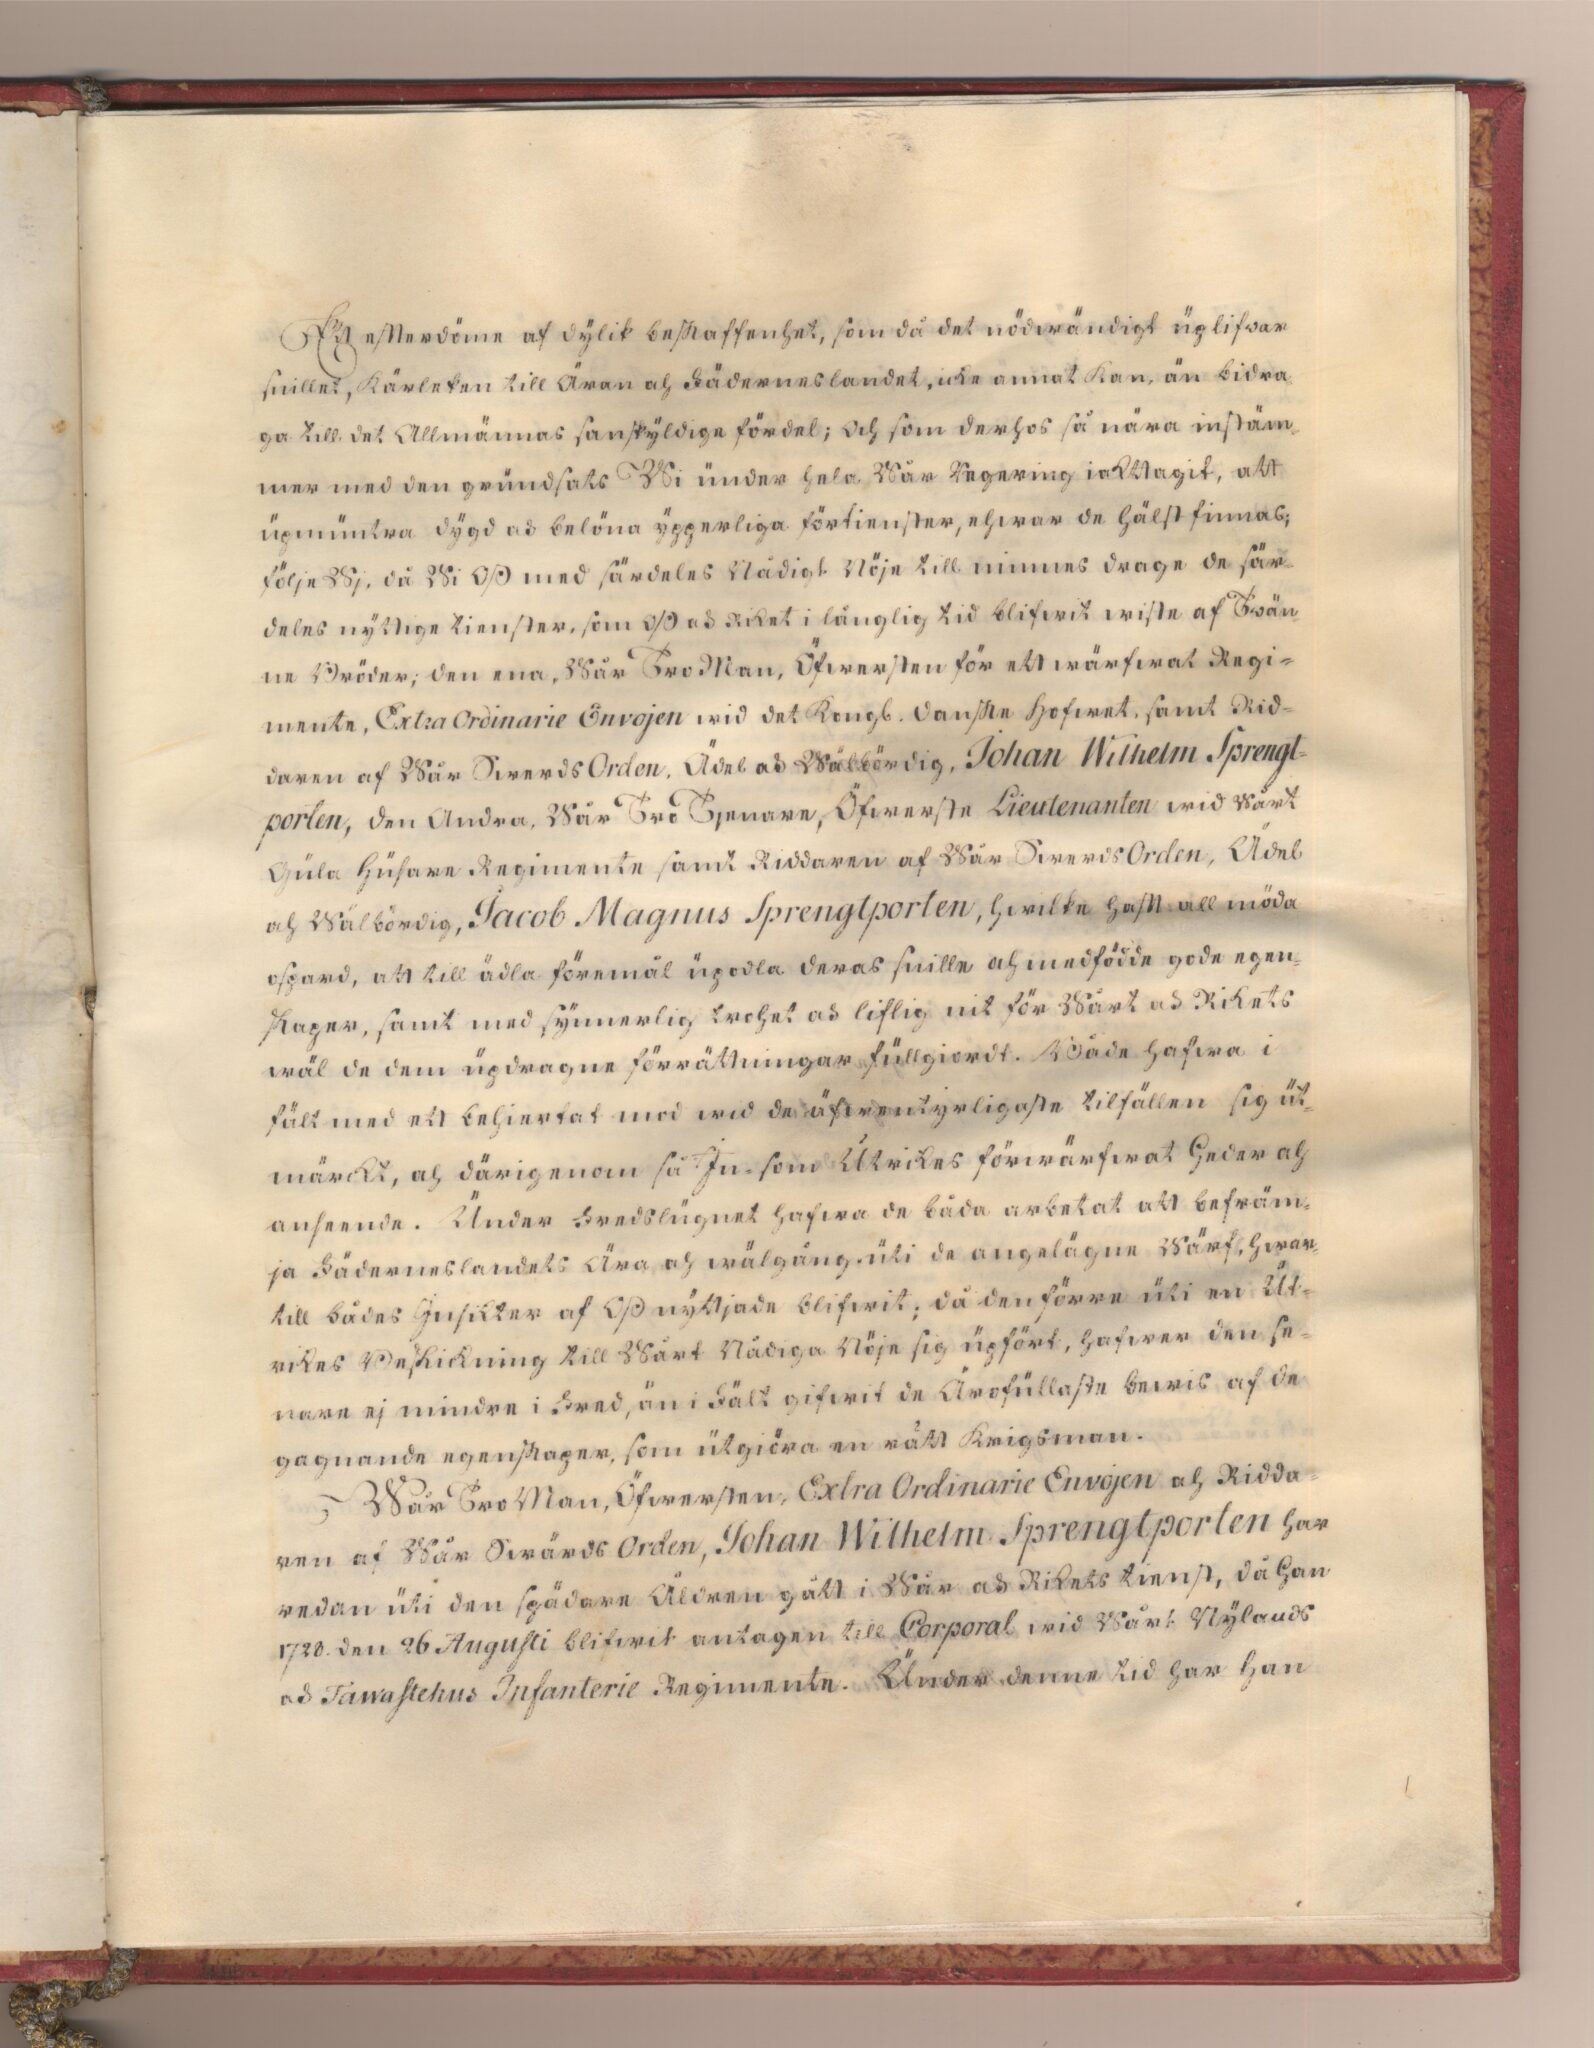 Ett efterdöme af dylik beskaffenhet, som då det nödwändigt uplifwar
snillet, Kärleken till Äran och Fäderneslandet, icke annat Kan, än bidra-
ga till det Allmännas sanskyldige fördel; Och som derhos så nära instäm-
mer med den grundsats Wi under hela Wår Regering iakttagit, att
upmuntra dygd och belöna ypperliga förtienster, ehwar de hälst finnas;
följe Wj, då Wi Oss med särdeles Nådigt Nöje till minnes drage de sär-
deles nyttige tienster, som Oss och Riket i långlig tid blifwit wiste af Twän-
ne Bröder; den ena, Wår Tro Man, Öfwersten för ett wärfwat Regi-
mente, Extra Ordinarie Envojen wid det Kongl. Danske Hofwet, samt Rid-
daren af Wår Swerds Orden, Ädel och Wälbördig, Johan Wilhelm Sprengt-
porten, den Andra, Wår Tro Tjenare, Öfwerste Lieutenanten wid Wårt
Gula Husare Regimente samt Riddaren af Wår Swerds Orden, Ädel
och Wälbördig, Jacob Magnus Sprengtporten, hwilke haft all möda
ospard, att till ädla föremål upodla deras snille och medfödde gode egen-
skaper, samt med synnerlig trohet och liflig nit för Wårt och Rikets
wäl de dem updragne förrättningar fullgiordt. Både hafwa i
fält med ett behiertat mod wid de äfwentyrligaste tilfällen sig ut-
märckt, och därigenom så In- som Utrikes förwärfwat Heder och
anseende. Under Fredslugnet hafwa de båda arbetat att befräm-
ja Fäderneslandets Ära och wälgång uti de angelägne Wärf, hwar-
till bådes Insikter af Oss nyttjade blifwit; då den förre uti en Ut-
rikes Beskickning till Wårt Nådiga Nöje sig upfört, hafwer den se-
nare ej mindre i Fred, än i Fält gifwit de Ärofullaste bewis af de
gagnande egenskaper, som utgiöra en rätt Krigsman.
Wår Tro Man, Öfwersten, Extra Ordinarie Envojen och Ridda-
ren af Wår Swärds Orden, Johan Wilhelm Sprengtporten har
redan uti den spädare Åldren gått i Wår och Rikets tienst, då Han
1728. den 26 Augusti blifwit antagen till Corporal wid Wårt Nylands
och Tawastehus Infanterie Regimente. Under denne tid har Han